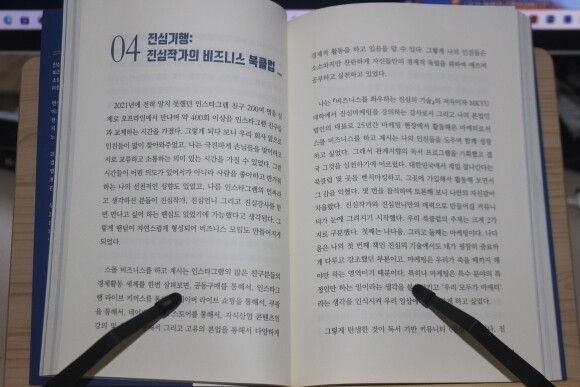 04 진심기행:
진심작가의 비즈니스 북클럽
2021년에 전혀 알지 못했던 인스타그램 친구 200여 명을 실
제로 오프라인에서 만나며 약 400회 이상을 인스타그램 친구들
과 교제하는 시간을 가졌다. 그렇게 되다 보니 우리 회사 앞으로
인친들이 많이 찾아봐주었고, 나는 극진하게 손님들을 맞이하며
서로 교류하고 소통하는 의미 있는 시간을 가질 수 있었다. 그런
시간들이 어떤 의도가 있어서가 아니라 사람을 좋아하고 반기는
나의 선천적인 성향도 있었고, 나름 인스타그램과의 인
생각하신 분들이 진심작가, 진심언니 그리고 진심강사를 한
번 만나고 싶어 하는 팬심도 있었기에 가능했다고 생각된다. 그
렇게 팬덤이 자연스럽게 형성되어 비즈니스 모임도 만들어지게
되었다.
스몰 비즈니스를 하고 계시는 인스타그램의 많은 친구분들의
경제활동 세계를 한번 살펴보면, 공동구매를 통해서, 인스타그
램 라이브 커머스를 통해서, 네이버 라이브 쇼핑을 통해서, 쿠팡
을 통해서, 스토어를 통해서, 지식산업 콘텐츠인
강의 그리고 고유의 본업을 통해서 다양하게
경제적 활동을 하고 있음을 알 수 있다. 그렇게 나의 인친들은
소소하지만 찬란하게 자신들만의 경제적 독립을 위하여 깨쓰며
공부하고 실천하고 있었다.
나는 『비즈니스를 좌우하는 진심의 기술』의 저자이자 MKYU
대학에서 진심마케팅을 강의하는 강사로서 그리고 나의 본업인
법인의 대표로 25년간 마케팅 현장에서 활동해온 마케터로서
스몰 비즈니스를 하고 계시는 나의 인친들을 도우며 함께 성장
하고 싶었다. 그래서 관계지향의 독서 프로그램을 기획했고 결
국 그것을 실천하기에 이르렀다. 대한민국에서 제일 잘나간다는
북클럽 몇 곳을 벤치마킹하고, 그곳에 가입해서 활동해 보면서
그 감을 익혔다. 몇 번을 참석하며 토론해 보니 나만의 자신감이
차올랐다. 진심작가와 진심언니만의 매력으로 만들어볼 커뮤니
티가 눈에 그려지기 시작했다. 우리 북클럽의 주제는 크게 2가
지로 구분했다. 첫째는 나다움, 그리고 둘째는 마케팅이다. 나다
움은 나의 첫 번째 책인 진심의 기술에서도 내가 굉장히 중요하
게 다루고 강조했던 부분이고, 마케팅은 우리가 죽을 때까지 해
야만 하는 영역이기 때문이다. 특히나 마케팅은 특수 분야의 특
정인만 하는 일이라는 생각을 '우리 모두가 마케터'
라는 생각을 인식시켜 우리 일상에 하고 싶었다.
그렇게 탄생한 것이 독서 기반 커뮤니티